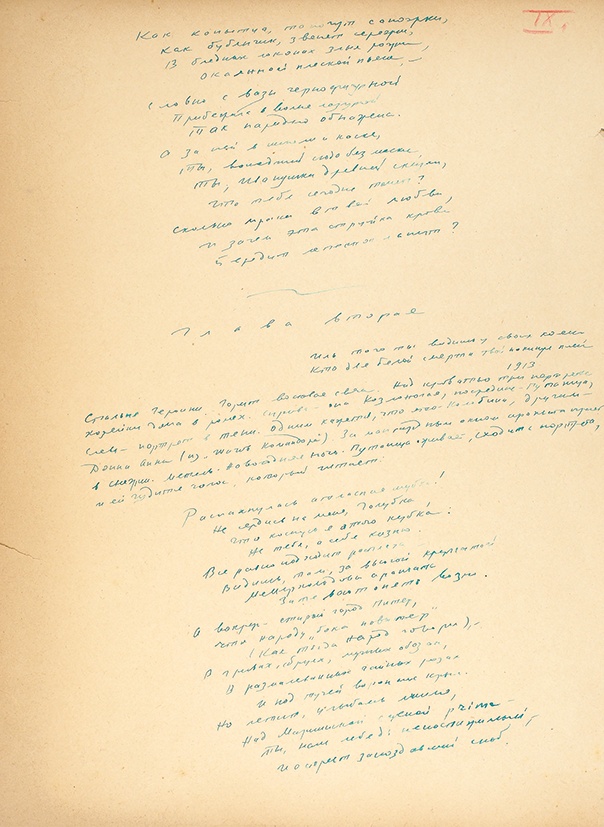 IX.
Как копытца, топочут сапожки,
Как бубенчик, звенят сережки,
В бледных локонах злые рожки,
Окаянной пляской пьяна, —
Словно с вазы чернофигурной
Прибежала к волне лазурной
Так парадно обнажена.
А за ней в шинели и каске,
Ты, вошедший сюда без маски
Ты, Иванушка древней сказки,
Что тебя сегодня томит?
Сколько мрака в твоей любви
И зачем эта струйка крови
Бередит лепесток ланит?
Глава вторая
Иль того ты видишь у своих колен
Кто для белой смерти твой покинул плен
1913
Спальня Героини. Горит восковая свеча. Над кроватью три портрета
хозяйки дома в ролях. Справа — она Козлоногая, посредине — Путаница,
слева — портрет в тени. Одним кажется, что это Коломбина, другим —
Донна Анна (из „Шагов Командора"). За мансардным окном арапчата играют
в снежки. Метель. Новогодняя ночь. Путаница оживает, сходит с портрета,
и ей чудится голос, который читает:
Распахнулась атласная шубка!
Не сердись на меня, Голубка
Что коснусь я этого кубка:
Не тебя, а себя казню.
Все равно подходит расплата
Видишь, там, за вьюгой крупчатой
Мейерхольдовы арапчата
Затевают опять возню.
А вокруг старый город Питер,
Что народу „бока повытер"
(Как тогда народ говорил), —
В гривах, сбруях, мучных обозах,
В размалеванных чайных розах
И под тучей вороньих крыл.
Но летит, улыбаясь мнимо,
Над Мариинской сценой prima —
Ты, наш лебедь непостижимый,
И острит запоздавший сноб.